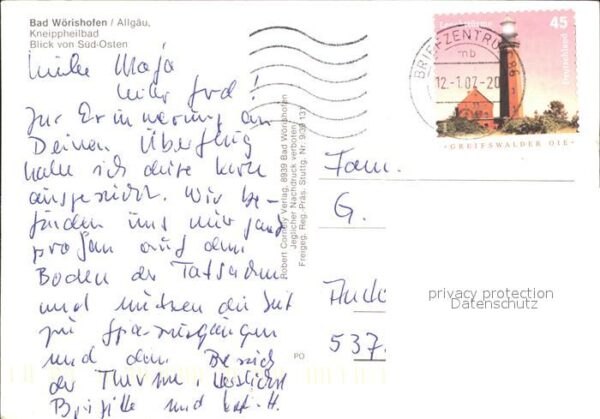 Bad Wörishofen / Allgäu,
Kneippheilbad
Blick von Süd-Osten
Liebe Maja
lieber Gerd!
Zur Erinnerung an
Deinen Überflug
habe ich diese Karte
ausgesucht. Wir be-
finden uns nur ganz
profan auf dem
Boden der Tatsachen
und nützen die Zeit
zu Spaziergängen
und dem Besuch
der Therme. Herzlichst
Brigitte und
Robert Cornely Verlag, 8939 Bad Wörishofen
Jeglicher Nachdruck verboten
Freigeg. Reg.-Präs. Stuttg. Nr. 9/39 131
PO
Leuchttürme
45
Deutschland
GREIFSWALDER OIE
BRIEFZENTRUM 86
mb
12.-1.07-20
Fam.
G.
537
privacy protection
Datenschutz